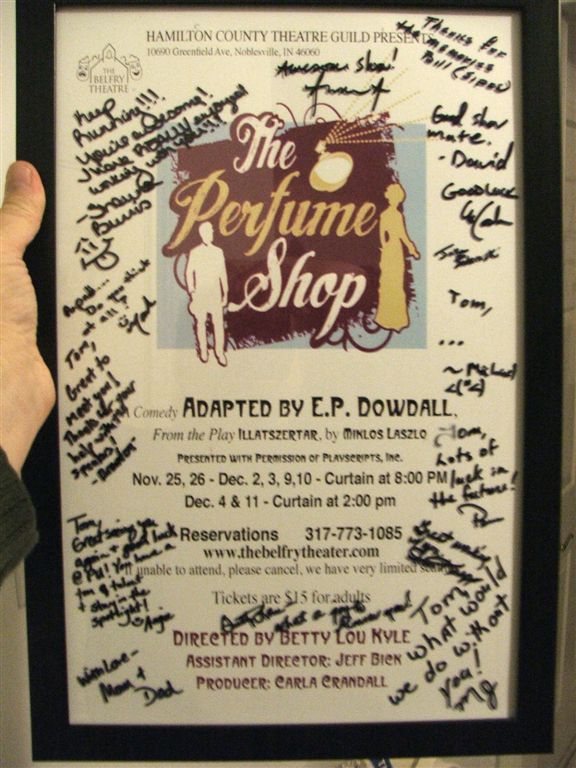 HAMILTON COUNTY THEATRE GUILD PRESENTS
10690 Greenfield Ave, Noblesville, IN 46060
THE
BELFRY
THEATRE
Awesome Show!
Thanks for
the memories
Good show
mate.
- David
Good luck
Keep
Running!!!
You're awesome!
I have REALLY enjoyed
working with you!!!
The
Perfume
Shop
Do you shirt
at all?
Tom,
Great to
meet you!
Thanks for your
help with my
- Brandon
Tom,
...
~ Michael
A Comedy ADAPTED BY E.P. DOWDALL,
From the Play ILLATSZERTAR, by MIKLOS LASZLO
PRESENTED WITH PERMISSION OF PLAYSCRIPTS, INC.
Nov. 25, 26 - Dec. 2, 3, 9,10 - Curtain at 8:00 PM
Dec. 4 & 11 - Curtain at 2:00 pm
Tom,
Lots of
luck in
the future!
Reservations 317-773-1085
www.thebelfrytheater.com
If unable to attend, please cancel, we have very limited
Tickets are $15 for adults
Tom,
Great seeing you
again + good luck
You have a
ton of talent
+ stay in the
spotlight!
Angie
what a guy
DIRECTED BY BETTY LOU KYLE
ASSISTANT DIRECTOR: JEFF BICK
PRODUCER: CARLA CRANDALL
Tom,
what would
we do without
you!
With Love -
Mom +
Dad